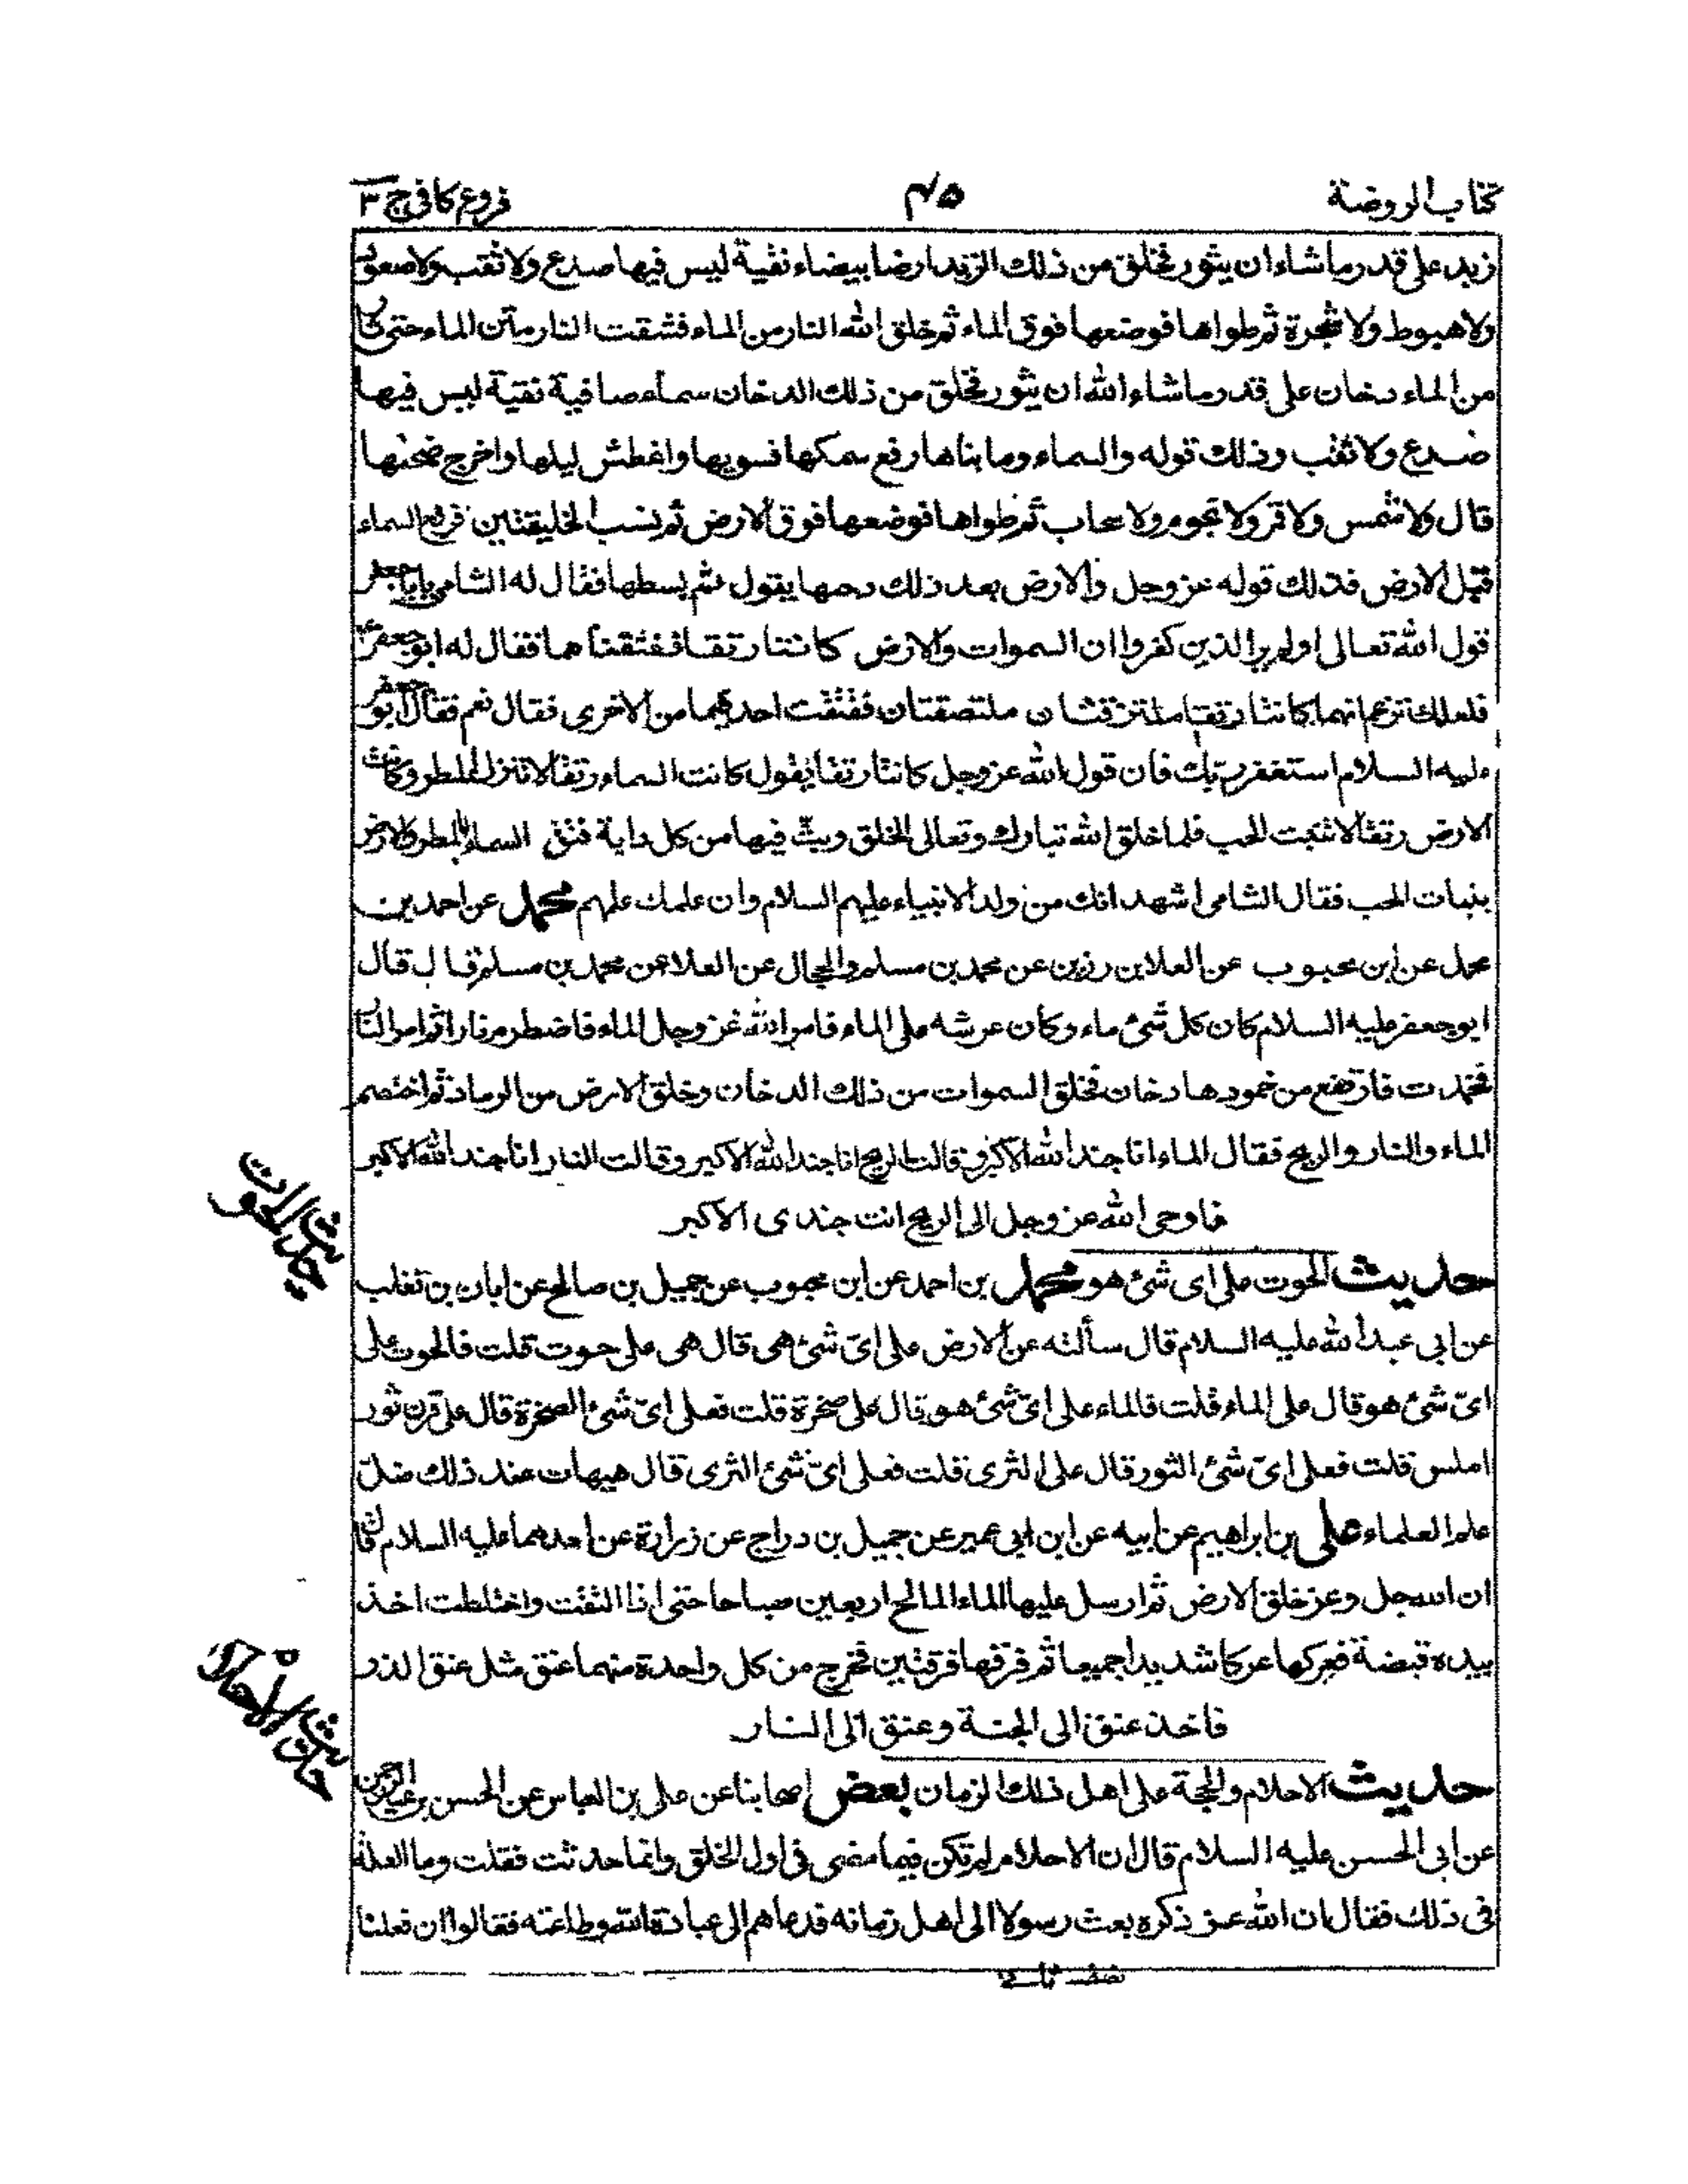 كتاب الروضة
٤٥
فروع كافي ج ٣
زبد على قدر ما شاء ان يثور فخلق من ذلك الزبد ارضا بيضاء نقية ليس فيها صدع ولا ثقب ولا صعود
ولا هبوط ولا شجرة ثم طواها فوضعها فوق الماء ثم خلق الله النار من الماء فشققت النار متن الماء حتى ثار
من الماء دخان على قدر ما شاء الله ان يثور فخلق من ذلك الدخان سماء صافية نقية ليس فيها
صدع ولا ثقب وذلك قوله والسماء وما بناها رفع سمكها فسويها واغطش ليلها واخرج ضحيها
قال ولا شمس ولا قمر ولا نجوم ولا سحاب ثم طواها فوضعها فوق الارض ثم نسب الخليقتين فرفع السماء
قبل الارض فذلك قوله عز وجل والارض بعد ذلك دحيها يقول ثم بسطها فقال له الشامي يا با جعفر
قول الله تعالى اولم ير الذين كفروا ان السموات والارض كانتا رتقا ففتقناهما فقال له ابو جعفر ع
فلعلك تزعم انهما كانتا رتقا ملتزقتان ملتصقتان ففتقت احديهما من الاخرى فقال نعم فقال ابو جعفر
عليه السلام استغفر ربك فان قول الله عز وجل كانتا رتقا يقول كانت السماء رتقا لا تنزل المطر وكانت
الارض رتقا لا تنبت الحب فلما خلق الله تبارك وتعالى الخلق وبث فيها من كل دابة فتق السماء بالمطر والارض
بنبات الحب فقال الشامي اشهد انك من ولد الانبياء عليهم السلام وان علمك علمهم محمد عن احمد بن
محمد عن ابن محبوب عن العلا بن رزين عن محمد بن مسلم والحجال عن العلا عن محمد بن مسلم قال قال
ابو جعفر عليه السلام كان كل شئ ماء وكان عرشه على الماء فامر الله عز وجل الماء فاضطرم نارا ثم امر النار
فخمدت فارتفع من خمودها دخان فخلق السموات من ذلك الدخان وخلق الارض من الرماد ثم اختصم
الماء والنار والريح فقال الماء انا جند الله الاكبر وقالت الريح انا جند الله الاكبر وقالت النار انا جند الله الاكبر
فاوحى الله عز وجل الى الريح انت جندى الاكبر
حديث الحوت
حديث الحوت على اى شئ هو محمد بن احمد عن ابن محبوب عن جميل بن صالح عن ابان بن تغلب
عن ابي عبد الله عليه السلام قال سألته عن الارض على اىّ شئ هى قال هى على حوت قلت فالحوت على
اىّ شئ هو قال على الماء قلت فالماء على اىّ شئ هو قال على صخرة قلت فعلى اىّ شئ الصخرة قال على قرن ثور
املس قلت فعلى اىّ شئ الثور قال على الثرى قلت فعلى اىّ شئ الثرى قال هيهات عند ذلك ضلّ
علم العلماء على بن ابراهيم عن ابيه عن ابن ابي عمير عن جميل بن دراج عن زرارة عن احدهما عليه السلام قال
ان الله جل وعز خلق الارض ثم ارسل عليها الماء المالح اربعين صباحا حتى اذا التقت واختلطت اخذ
بيده قبضة فعركها عركا شديدا جميعا ثم فرقها فرقتين فخرج من كل واحدة منهما عنق مثل عنق الذر
فاخذ عنق الى الجنة وعنق الى النار
حديث الاحلام
حديث الاحلام والحجة على اهل ذلك الزمان بعض اصحابنا عن على بن العباس عن الحسن بن عبد الرحمن
عن ابي الحسن عليه السلام قال ان الاحلام لم تكن فيما مضى فى اول الخلق وانما حدثت فقلت وما العلة
فى ذلك فقال ان الله عز ذكره بعث رسولا الى اهل زمانه فدعاهم الى عبادة الله وطاعته فقالوا ان فعلنا